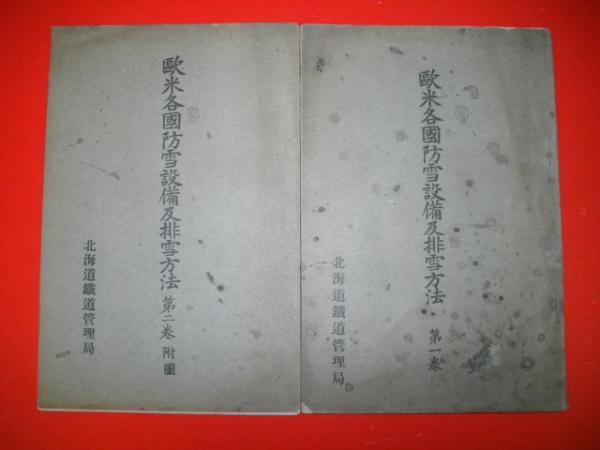 歐米各國防雪設備及排雪方法 第一卷
北海道鐵道管理局
歐米各國防雪設備及排雪方法 第二卷 附圖
北海道鐵道管理局